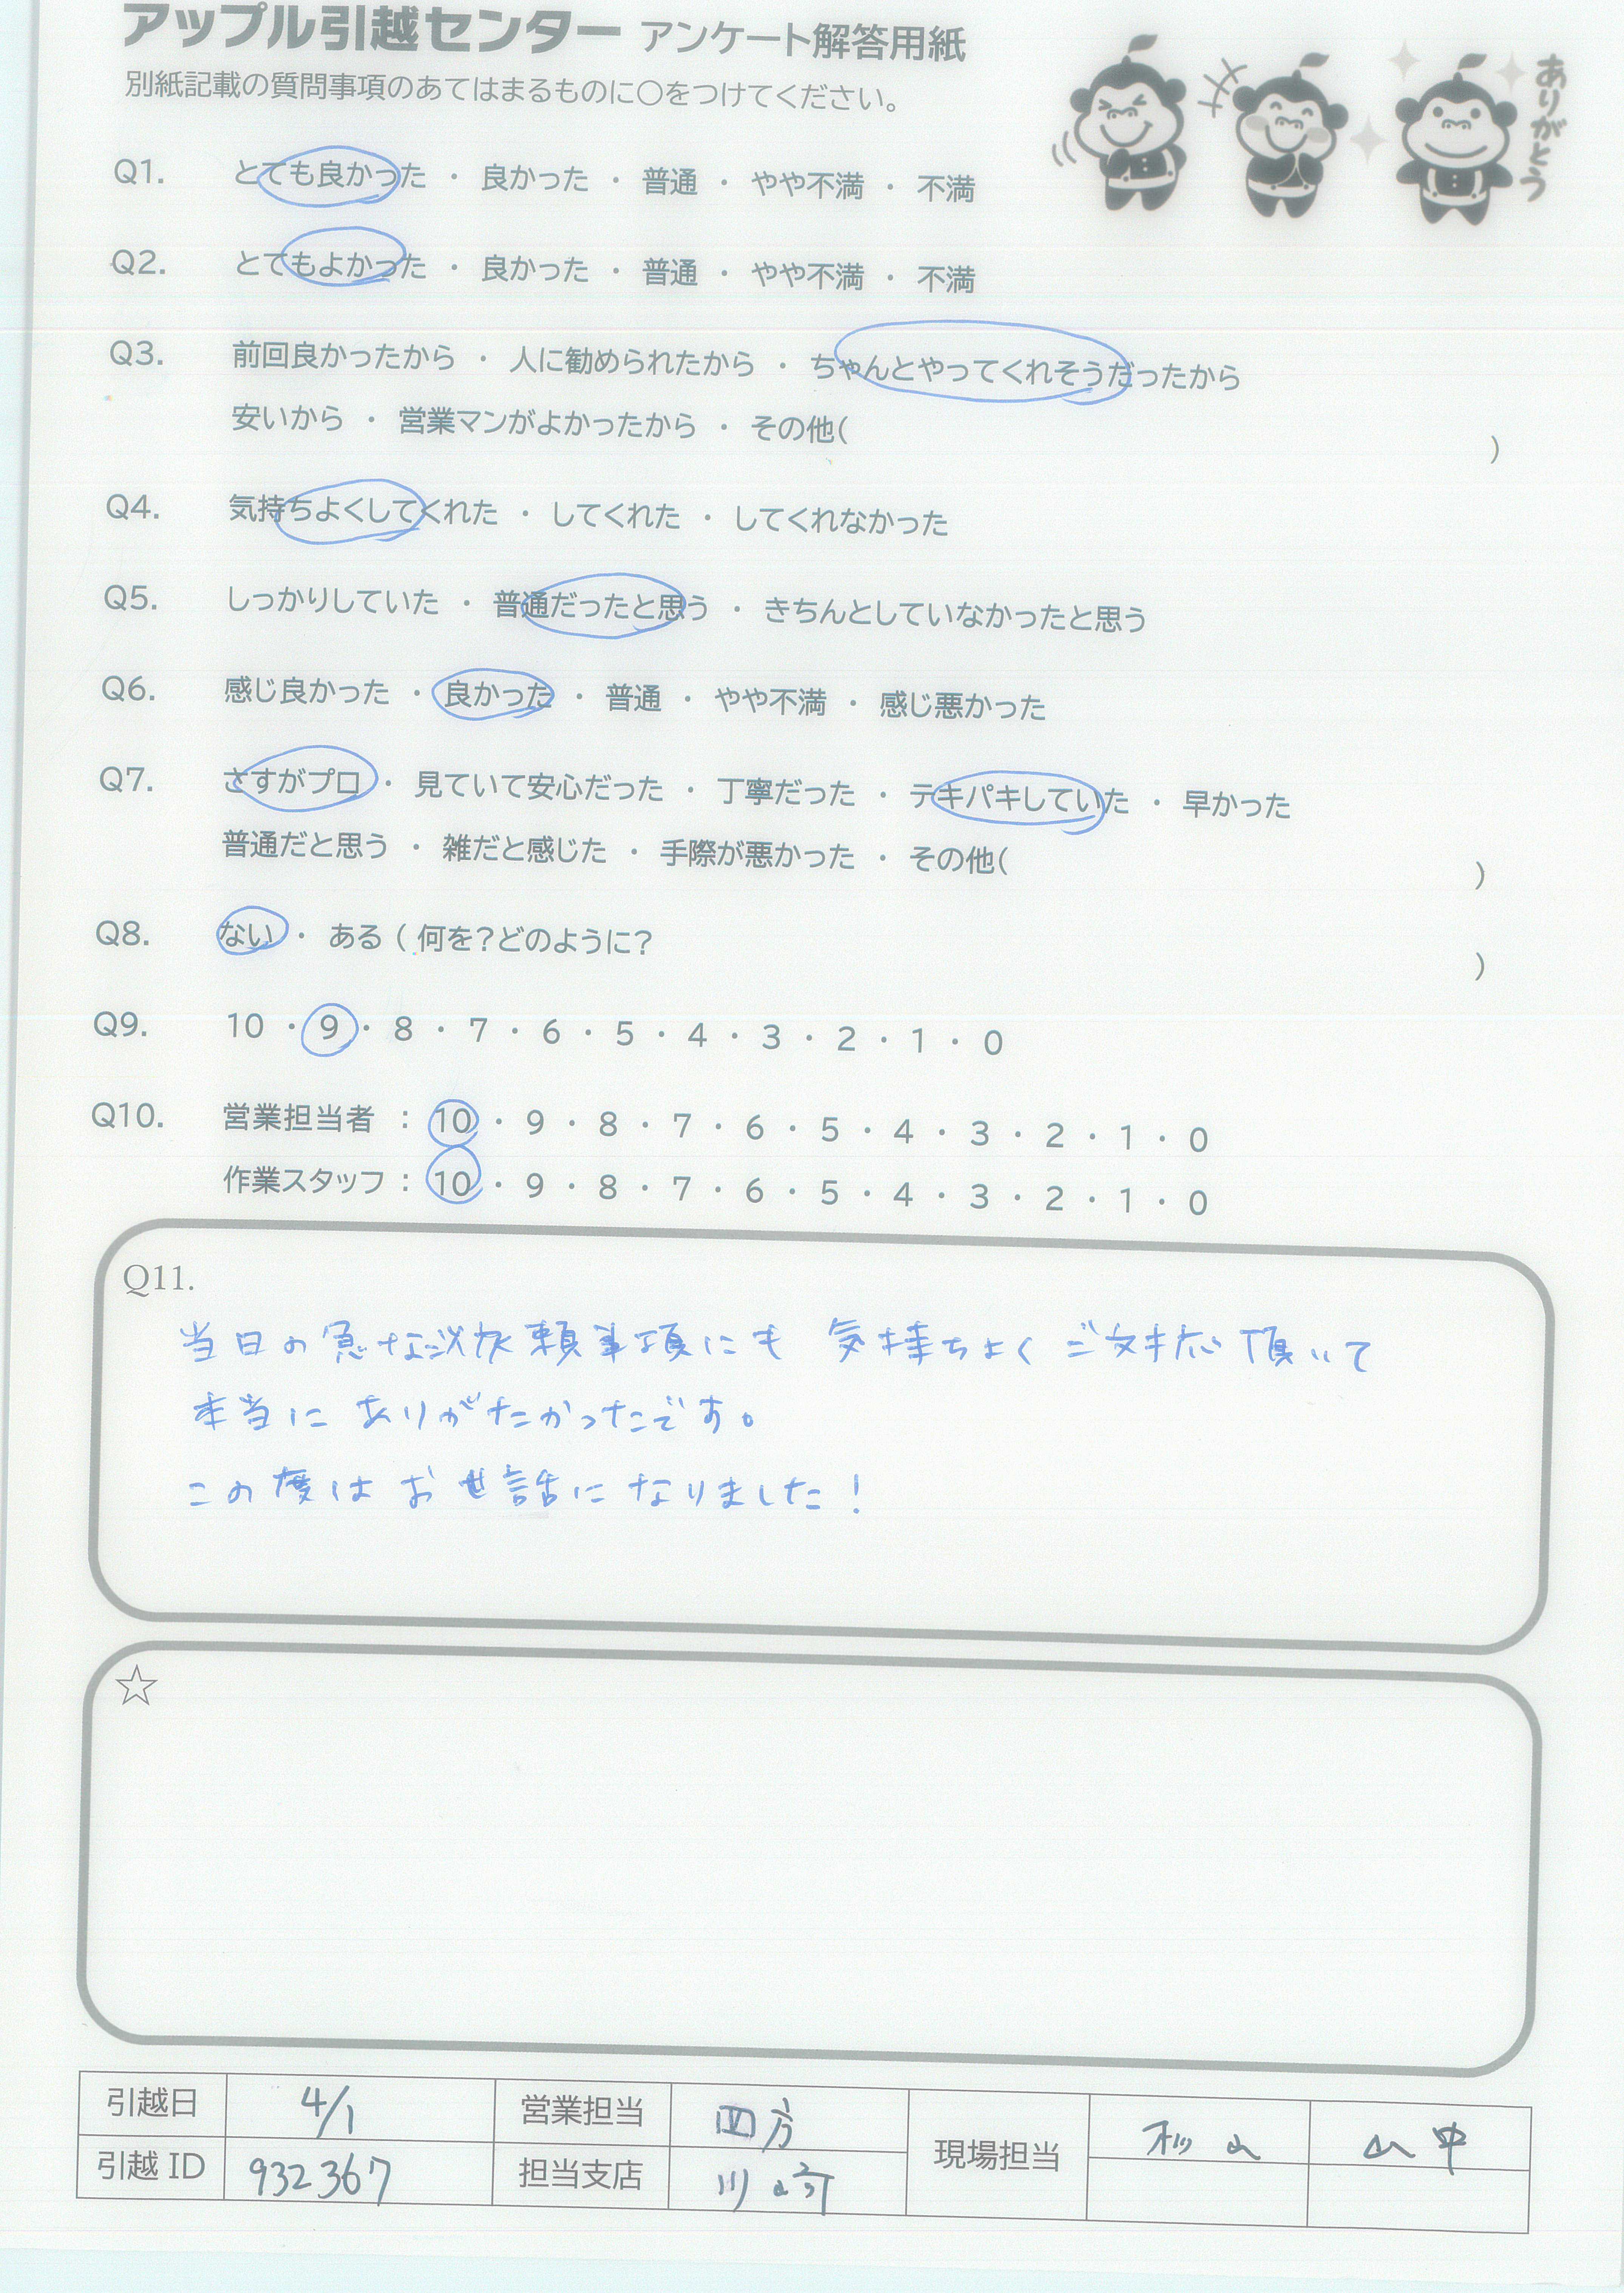 アップル引越センター アンケート解答用紙
別紙記載の質問事項のあてはまるものに○をつけてください。
ありがとう
Q1. とても良かった ・ 良かった ・ 普通 ・ やや不満 ・ 不満
Q2. とてもよかった ・ 良かった ・ 普通 ・ やや不満 ・ 不満
Q3. 前回良かったから ・ 人に勧められたから ・ ちゃんとやってくれそうだったから
安いから ・ 営業マンがよかったから ・ その他( )
Q4. 気持ちよくしてくれた ・ してくれた ・ してくれなかった
Q5. しっかりしていた ・ 普通だったと思う ・ きちんとしていなかったと思う
Q6. 感じ良かった ・ 良かった ・ 普通 ・ やや不満 ・ 感じ悪かった
Q7. さすがプロ ・ 見ていて安心だった ・ 丁寧だった ・ テキパキしていた ・ 早かった
普通だと思う ・ 雑だと感じた ・ 手際が悪かった ・ その他( )
Q8. ない ・ ある ( 何を?どのように? )
Q9. 10 ・ 9 ・ 8 ・ 7 ・ 6 ・ 5 ・ 4 ・ 3 ・ 2 ・ 1 ・ 0
Q10. 営業担当者 : 10 ・ 9 ・ 8 ・ 7 ・ 6 ・ 5 ・ 4 ・ 3 ・ 2 ・ 1 ・ 0
作業スタッフ : 10 ・ 9 ・ 8 ・ 7 ・ 6 ・ 5 ・ 4 ・ 3 ・ 2 ・ 1 ・ 0
Q11.
当日の急な依頼事項にも 気持ちよく ご対応 頂いて
本当に ありがたかったです。
この度は お世話に なりました!
☆
引越日 4/1 営業担当 四方 現場担当 杉山 山中
引越 ID 932367 担当支店 川崎